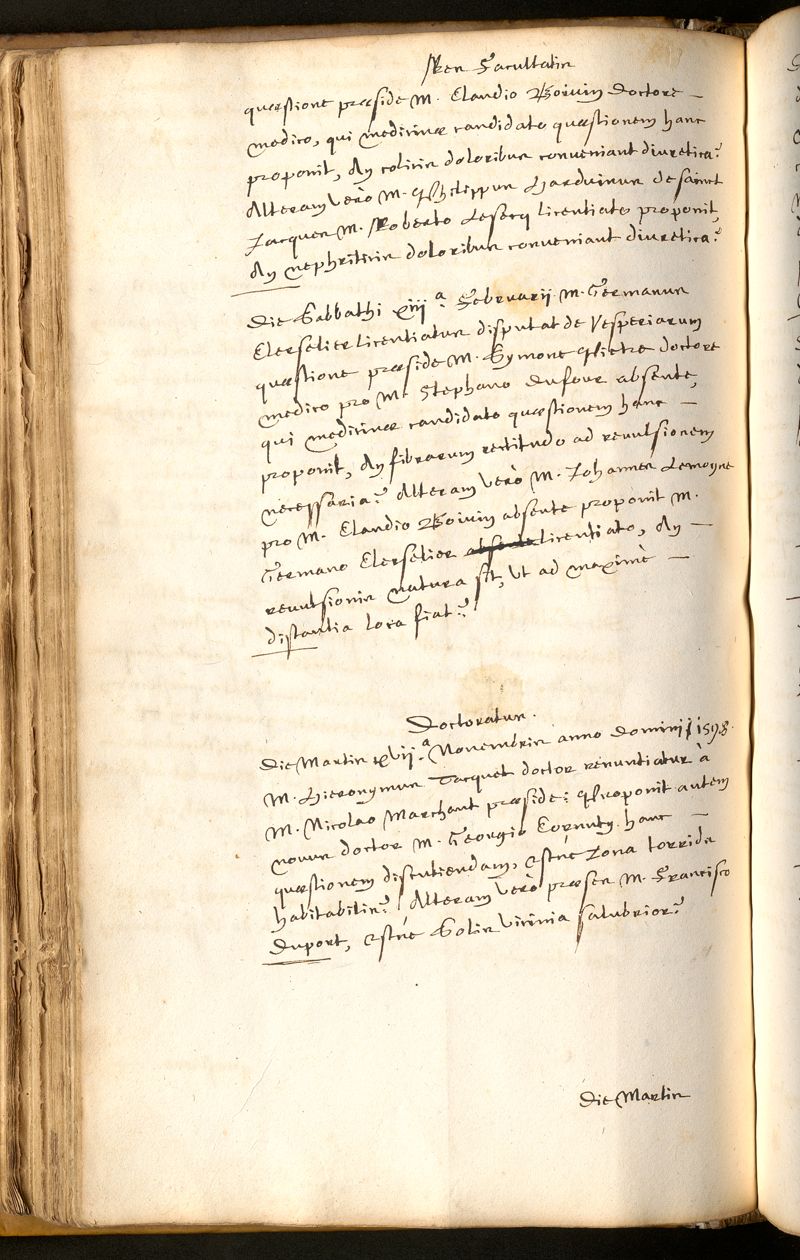 Res Facultatis
quæstione præside M. Claudio Boivin Doctore
medico, qui medicinæ candidato quæstionem hanc
proponit, An colicis doloribus conveniant diuretica?
Alteram verò M. Philippus Harduinus de sainct
Jacques M. Roberto Lesecq licentiato proponit,
An nephriticis doloribus conveniant diuretica?
Die Sabbathi xiijª. Februarij M. Germanus
Clerselier licentiatus disputat de Vesperiarum
quæstione præside M. Symone Pietre doctore
medico pro M. Stephano Dufour absente,
qui medicinæ candidato quæstionem hanc
proponit, An fibrarum rectitudo ad revulsionem
necessaria? Alteram verò M. Johannes Lemoyne
pro M. Claudio Boivin absente proponit M.
Germano Clerselier absente licentiato, An
revulsionis natura sit, ut ad maximè
distantia loca fiat?
Doctoratus.
Die Martis xvijª. Novembris anno Domini 1598.
M. Hieronymus Tacquet doctor renuntiatur à
M. Nicolao Marchant præside: Proponit autem
novus doctor M. Georgio Cornuty hanc
quæstionem discutiendam, estne Zona torrida
habitabilis? Alteram verò præses M. Francisco
Duport, estne Solis vicinia salubrior?
Die Martis